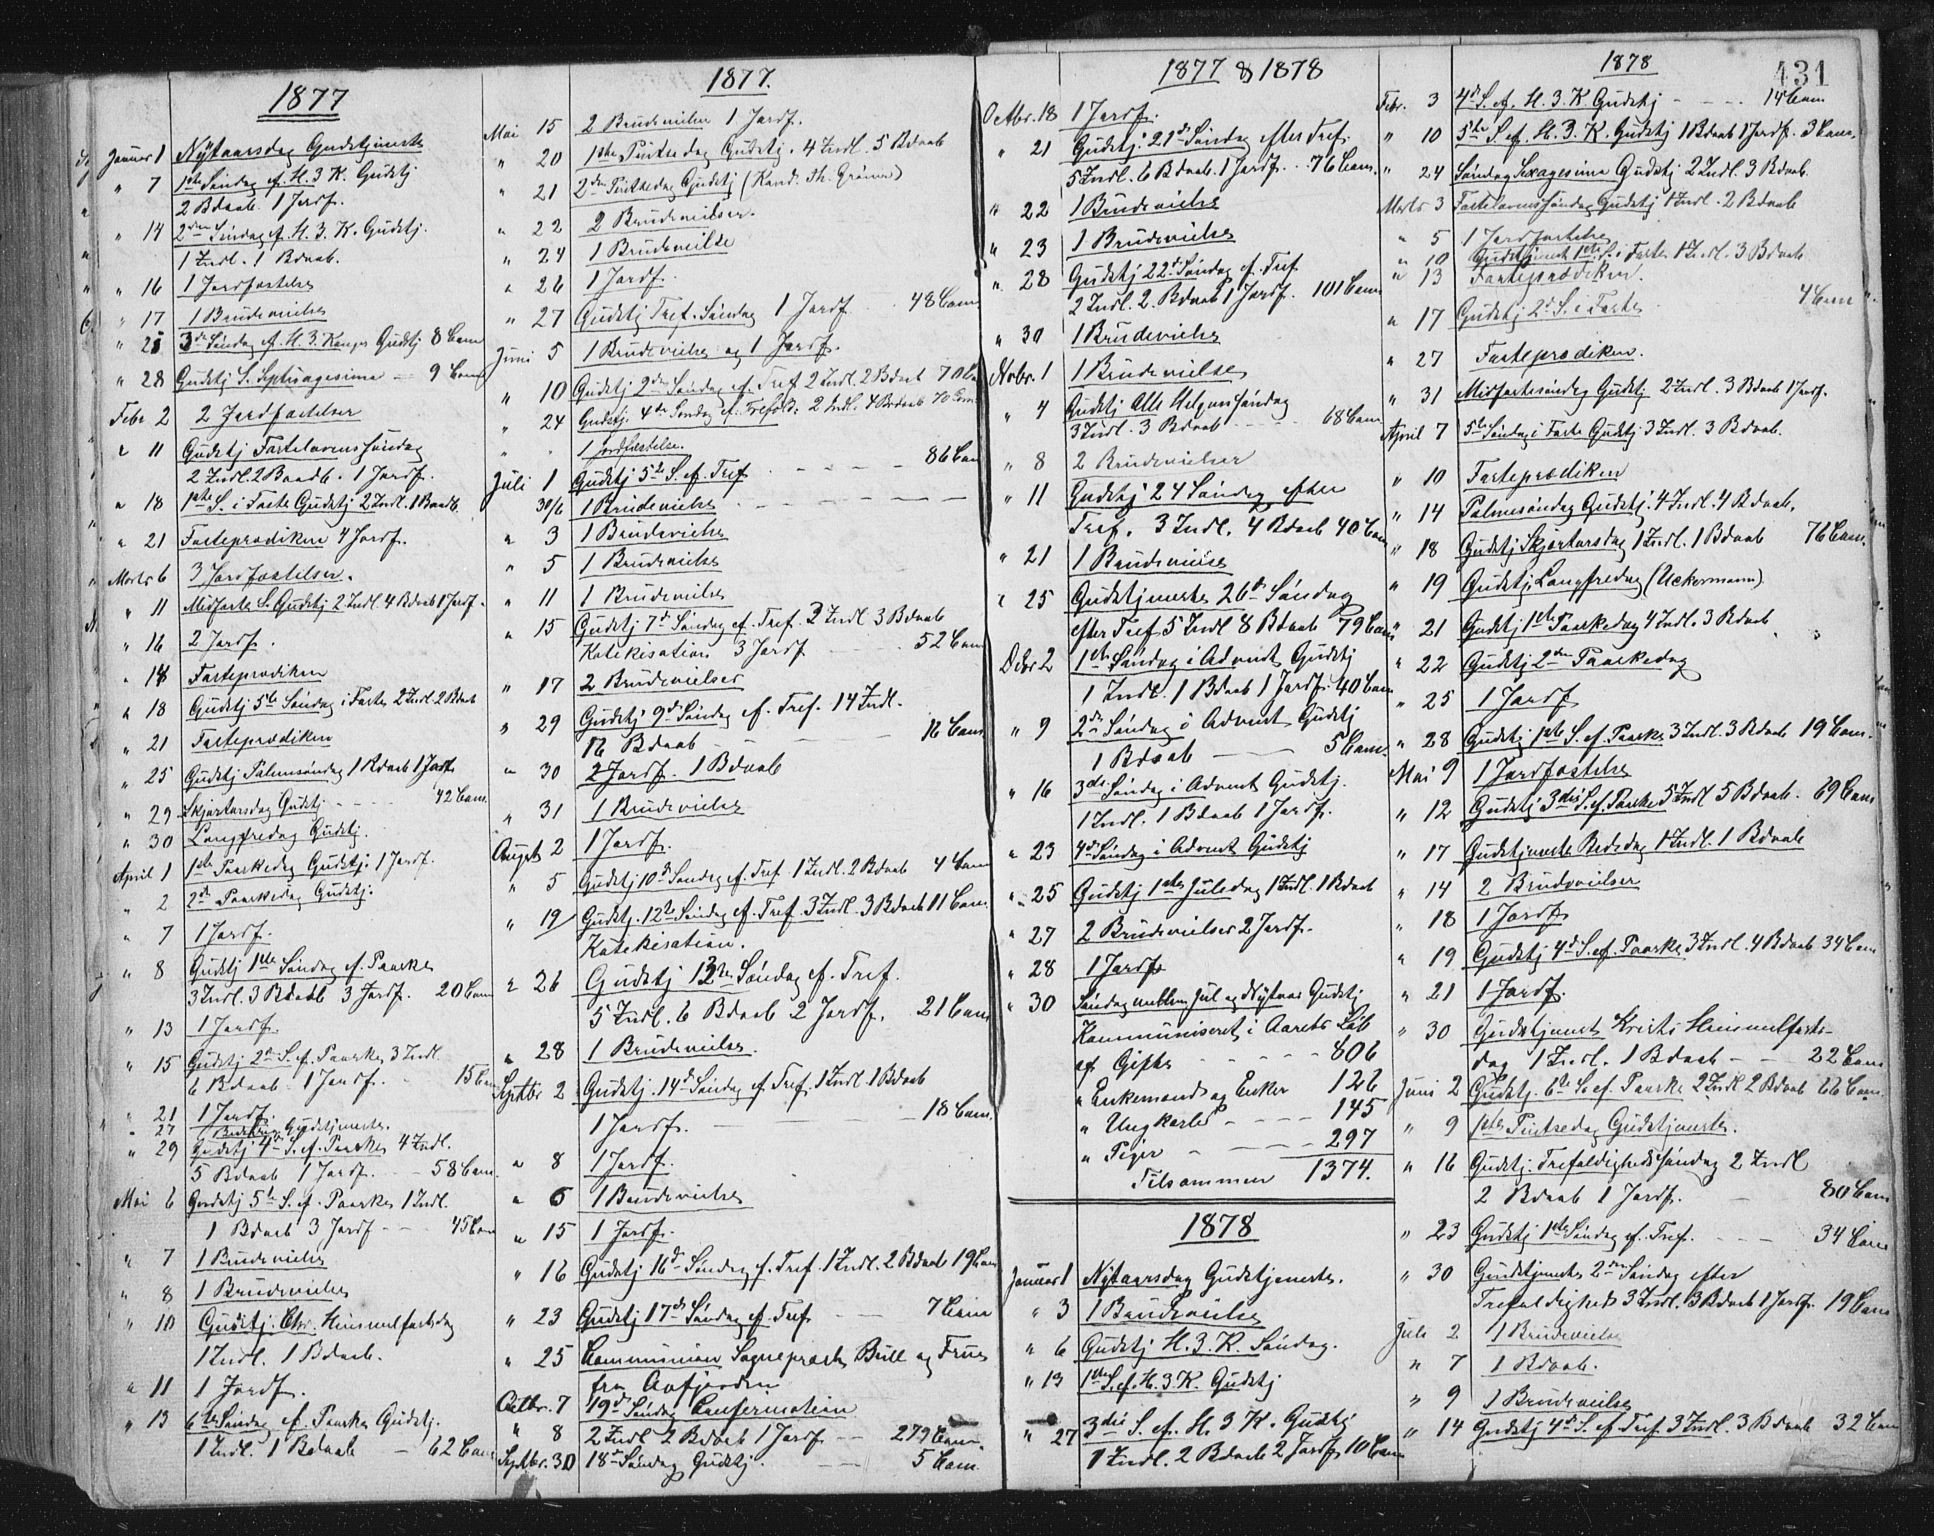 1877
Januar 1 Nytaarsdag Gudstjeneste
" 7 1ste Søndag ef. H. 3 K. Gudstj
2 Bdaab. 1 Jordf.
" 14 2den Søndag ef. H. 3. K. Gudstj.
1 Indl. 1 Bdaab.
" 16 1 Jordfæstelse
" 17 1 Brudevielse
" 21 3de Søndag ef. H. 3. Konger Gudstj 8 Com
" 28 Gudstj S. Septuagesima — 9 Com
Febr 2 2 Jordfæstelser
" 11 Gudstj Fastelavenssøndag
2 Indl. 2 Baadb. 1 Jordf.
" 18 1ste S. i Faste Gudstj 2 Indl. 1 Baadb.
" 21 Fasteprædiken 4 Jordf.
Marts 6 3 Jordfæstelser.
" 11 Midfaste S. Gudstj 2 Indl. 4 Bdaab 1 Jordf.
" 16 2 Jordf.
" 14 Fasteprædiken
" 18 Gudstj 5te Søndag i Faste 2 Indl 2 Bdaab
" 21 Fasteprædiken
" 25 Gudstj Palmesøndag 1 Bdaab 1 Jordf
" 29 Skjærtorsdag Gudstj. - - - 42 Com.
" 30 Langfredag Gudstj.
April 1 1ste Paaskedag Gudstj. 1 Jordf.
" 2 2den Paaskedag Gudstj.
" 7 1 Jordf.
" 8 Gudstj 1ste Søndag ef. Paaske
3 Indl. 3 Bdaab 3 Jordf. 20 Com
" 13 1 Jordf.
" 15 Gudstj 2den S. ef. Paaske 3 Indl.
6 Bdaab 1 Jordf. - 15 Com
" 21 1 Jordf.
" 27 Bededags Gudstjeneste.
" 29 Gudstj 4de S. ef. Paaske 4 Indl.
5 Bdaab 1 Jordf. - - 58 Com.
Mai 6 Gudstj 5te S. ef. Paaske 1 Indl.
1 Bdaab 3 Jordf - - 45 Com
" 7 1 Brudevielse
" 8 1 Brudevielse
" 10 Gudstj. Chr. Himmelfartsdag
1 Indl. 1 Bdaab.
" 11 1 Jordf.
" 13 6te Søndag ef. Paaske Gudstj.
1 Indl. 1 Bdaab - 62 Com
1877.
Mai 15 2 Brudevielser 1 Jordf.
" 20 1ste Pintsedag Gudstj. 4 Indl. 5 Bdaab
" 21 2den Pintsedag Gudstj (Kand. Th. Grønne)
" 22 2 Brudevielser.
" 24 1 Brudevielse
" 26 1 Jordf.
" 27 Gudstj Tref. Søndag 1 Jordf. 48 Com
Juni 5 1 Brudevielse og 1 Jordf.
" 10 Gudstj 2den Søndag ef. Tref 2 Indl. 2 Bdaab 70 Co
" 24 Gudstj. 4de Søndag ef. Trefold: 2 Indl. 4 Bdaab 70 Com
" " 1 Jordfæstelse.
Juli 1 Gudstj 5te S. ef. Tref - - - - 86 Com
30/6 1 Brudevielse
" 3 1 Brudevielse
" 5 1 Brudevielse
" 11 1 Brudevielse
" 15 Gudstj 7de Søndag ef. Tref. 2 Indl 3 Bdaab
Katekisation 3 Jordf - - 52 Com
" 17 2 Brudevielser
" 29 Gudstj 9de Søndag ef. Tref. 14 Indl.
16 Bdaab - - - 16 Com
" 30 2 Jordf. 1 Bdaab
" 31 1 Brudevielse
August 2 1 Jordf.
" 5 Gudstj 10de Søndag ef. Tref 1 Indl. 2 Bdaab 4 Com
" 19 Gudstj. 12te Søndag ef. Tref. 3 Indl. 3 Bdaab 11 Com.
Katekisation.
" 26 Gudstj 13de Søndag ef. Tref.
5 Indl. 6 Bdaab 2 Jordf. 21 Com
" 28 1 Brudevielse.
Septbr 2 Gudstj. 14de Søndag ef. Tref. 1 Indl 1 Bdaab
1 Jordf. - - - 18 Com.
" 8 1 Jordf.
" 6 1 Brudevielse
" 15 1 Jordf.
" 16 Gudstj 16de Søndag ef. Tref. 1 Indl. 2 Bdaab 19 Com
" 23 Gudstj 17de Søndag ef. Tref - - 7 Com
" 25 Communion Sognepræst Bull og Frue
fra Aafjorden
Octbr. 7 19de Søndag Confirmation
" 8 2 Indl 2 Bdaab 1 Jordf - - 279 Com.
Septbr. 30 18de Søndag Gudstj. - - 5 Com.
1877 & 1878
Octbr. 18 1 Jordf.
" 21 Gudstj. 21de Søndag efter Tref.
5 Indl. 6 Bdaab. 1 Jordf. - 76 Com.
" 22 1 Brudevielse
" 23 1 Brudevielse
" 28 Gudstj 22de Søndag ef. Tref
2 Indl. 2. Bdaab 1 Jordf. 101 Com
" 30 1 Brudevielse
Novbr. 1 1 Brudevielse
" 4 Gudstj Alle Helgenssøndag
3 Indl. 3 Bdaab - - - - 68 Com
" 8 2 Brudevielser
" 11 Gudstj 24 Søndag efter
Tref. 3 Indl. 4 Bdaab 40 Com
" 21 1 Brudevielse
" 25 Gudstjeneste 26de Søndag
efter Tref 5 Indl 8 Bdaab 79 Com
Debr 2 1ste Søndag i Advent Gudstj
1 Indl. 1 Bdaab 1 Jordf. 40 Com
" 9 2den Søndag i Advent Gudstj
1 Bdaab - - 5 Com.
" 16 3die Søndag i Advent Gudstj.
1 Indl. 1 Bdaab 1 Jordf.
" 23 4de Søndag i Advent Gudstj
" 25 Gudstj 1ste Juledag 1 Indl. 1 Bdaab
" 27 2 Brudevielser 2 Jordf.
" 28 1 Jordf
" 30 Søndag mellem Jul og Nytaar Gudstj
Kommuniseret i Aarets Løb
af Gifte - - - - 806
" Enkemænd og Enker 126
" Ungkarle - - - - 145
" Piger - - - - 297
Tilsammen 1374.
1878
Januar 1 Nytaarsdag Gudstjeneste.
" 3 1 Brudevielse
" 6 Gudstj H. 3. K. Søndag.
" 13 1ste S. ef. H. 3 K. Gudstj
" 27 3die S. ef. H. 3 K. Gudstj
1 Indl. 2 Bdaab 2 Jordf 10 Com
1878
431
Febr. 3 4de S. ef. H. 3 K Gudstj - - - 14 Com
" 10 5te S. ef. H. 3. K. Gudstj 1 Bdaab 1 Jordf. 3 Com.
" 24 Søndag Sexagesima Gudstj 2 Indl. 3 Bdaab.
Marts 3 Fastelavenssøndag Gudstj 1 Indl. 2 Bdaab
" 5 1 Jordfæstelse
" 10 Gudstjenest 1ste S. i Faste 1 Indl. 3 Bdaab
" 13 Fasteprædiken.
" 17 Gudstj 2den S. i Faste 4 Com
" 27 Fasteprædiken.
" 31 Midfastesøndag Gudstj 2 Indl. 3 Bdaab 1 Jordf.
April 7 5te Søndag i Faste Gudstj 3 Indl. 3 Bdaab.
" 10 Fasteprædiken
" 14 Palmesøndag Gudstj. 4 Indl. 4 Bdaab.
" 18 Gudstj Skjærtorsdag 1 Indl. 1 Bdaab 76 Com.
" 19 Gudstj. Langfredag (Uckermann)
" 21 Gudstj 1ste Paaskedag 4 Indl. 3 Bdaab
" 22 Gudstj 2den Paaskedag
" 25 1 Jordf
" 28 Gudstj 1ste S. ef. Paaske 3 Indl. 3 Bdaab 19 Com.
Mai 9 1 Jordfæstelse
" 12 Gudstj 3die S. ef. Paaske 5 Indl 5 Bdaab. 69 Com
" 17 Gudstjeneste Bededag 1 Indl. 1 Bdaab
" 14 2 Brudevielser
" 18 1 Jordf
" 19 Gudstj 4de S. ef. Paaske 3 Indl. 4 Bdaab 34 Com
" 21 1 Jordf.
" 30 Gudstjenest Kristi Himmelfarts-
dag 1 Indl. 1 Bdaab - - 22 Com
Juni 2 Gudstj. 6te S. ef. Paaske 2 Indl 2 Bdaab 66 Com.
" 9 1ste Pintsedag Gudstjeneste.
" 16 Gudstj. Trefoldighedssøndag 2 Indl
2 Bdaab 1 Jordf. - 80 Com
" 23 Gudstj 1ste Søndag ef. Tref. - - - 34 Com
" 30 Gudstjeneste 2den Søndag efter
Trefoldigheds 3 Indl. 3 Bdaab 1 Jordf. 19 Com
Juli 2 1 Brudevielse
" 7 1 Bdaab.
" 9 1 Brudevielse
" 14 Gudstj 4de S. ef. Tref. 3 Indl. 3 Bdaab 32 Com